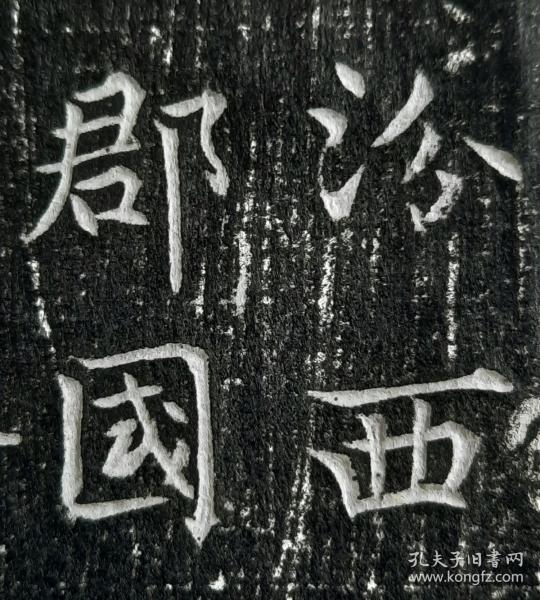 汾西
郡國
孔夫子旧书网
www.kongfz.com